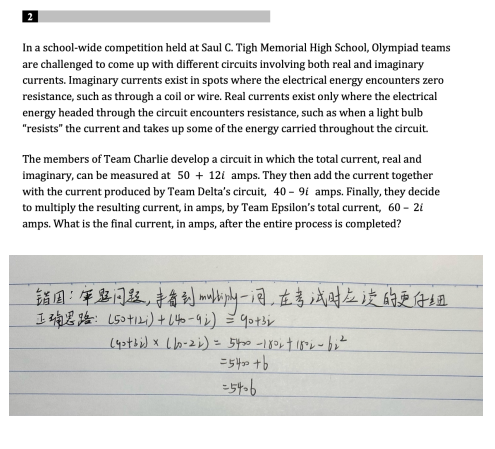 2
In a school-wide competition held at Saul C. Tigh Memorial High School, Olympiad teams
are challenged to come up with different circuits involving both real and imaginary
currents. Imaginary currents exist in spots where the electrical energy encounters zero
resistance, such as through a coil or wire. Real currents exist only where the electrical
energy headed through the circuit encounters resistance, such as when a light bulb
“resists” the current and takes up some of the energy carried throughout the circuit.
The members of Team Charlie develop a circuit in which the total current, real and
imaginary, can be measured at 50 + 12i amps. They then add the current together
with the current produced by Team Delta’s circuit, 40 – 9i amps. Finally, they decide
to multiply the resulting current, in amps, by Team Epsilon’s total current, 60 – 2i
amps. What is the final current, in amps, after the entire process is completed?
错因：审题问题，未看到 multiply一词，在考试时应读的更仔细
正确思路：(50+12i)+(40-9i) = 90+3i
(90+3i) × (60-2i) = 5400 -180i +180i -6i²
=5400 +6
=5406